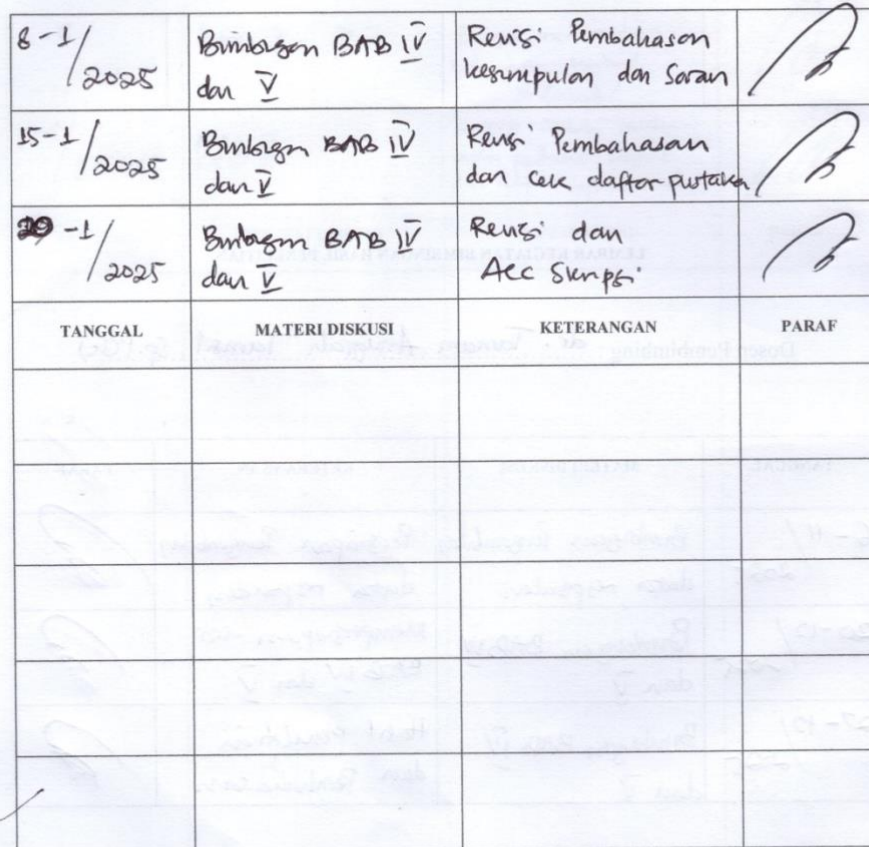 8-1/2025
Bimbingan BAB IV
dan V
Revisi Pembahasan
kesimpulan dan Saran
15-1/2025
Bimbingan BAB IV
dan V
Revisi Pembahasan
dan cek daftar pustaka
-1/2025
Bimbingan BAB IV
dan V
Revisi dan
Acc Skripsi
TANGGAL MATERI DISKUSI KETERANGAN PARAF